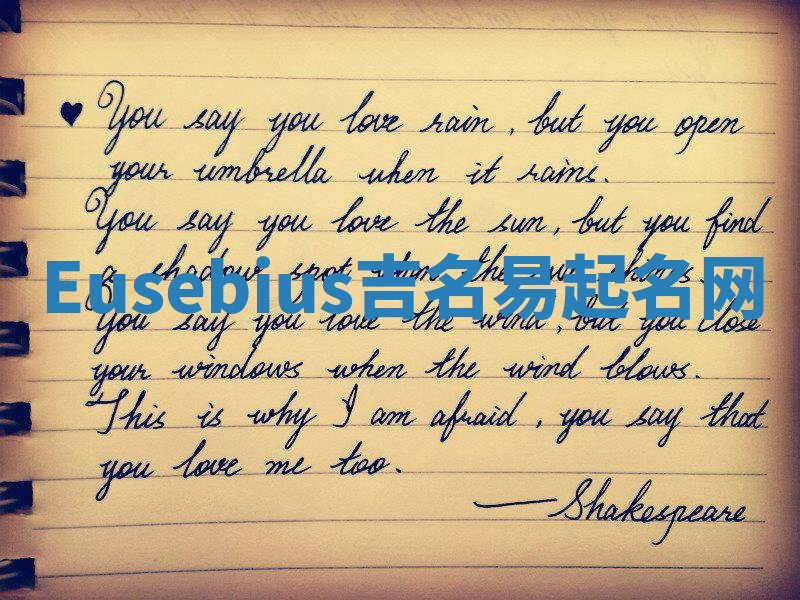 ♥ You say you love rain, but you open
your umbrella when it rains.
You say you love the sun, but you find
a shadow spot when the sun shines.
Eusebius吉名易起名网
You say you love the wind, but you close
your windows when the wind blows.
This is why I am afraid, you say that
you love me too.
—Shakespeare